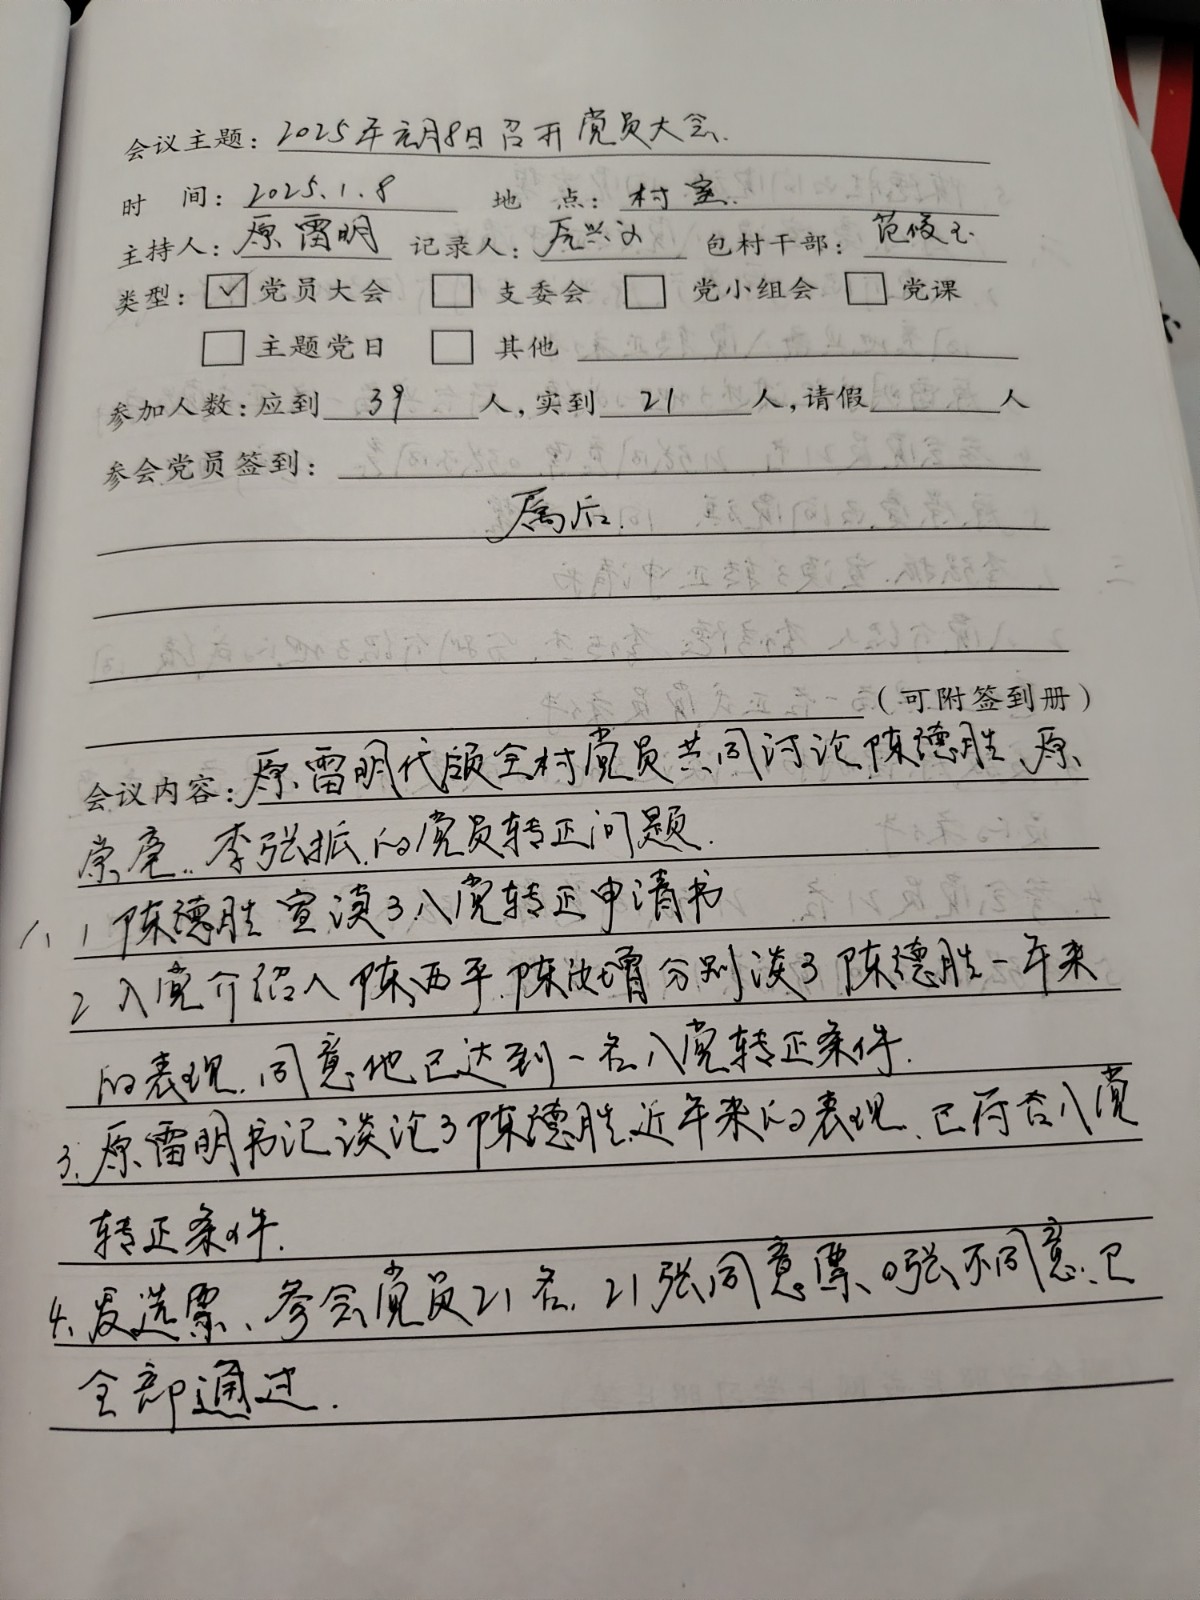 会议主题：2025年元月8日召开党员大会.
时 间：2025.1.8 地 点：村室.
主持人：原雷明 记录人： 包村干部：范俊玉
类型：☑党员大会 □ 支委会 □ 党小组会 □ 党课
□ 主题党日 □ 其他
参加人数：应到 39 人，实到 21 人，请假 人
参会党员签到：
属后.
（可附签到册）
会议内容：原雷明代领全村党员共同讨论陈德胜、原
荣亮..李张振.的党员转正问题.
一、1 陈德胜宣读了入党转正申请书
2 入党介绍人陈西平.陈增分别谈了陈德胜一年来
的表现.同意他已达到一名入党转正条件.
3.原雷明书记谈论了陈德胜近年来的表现、已符合入党
转正条件.
4.发选票、参会党员21名.21张同意票.0张不同意.已
全部通过.